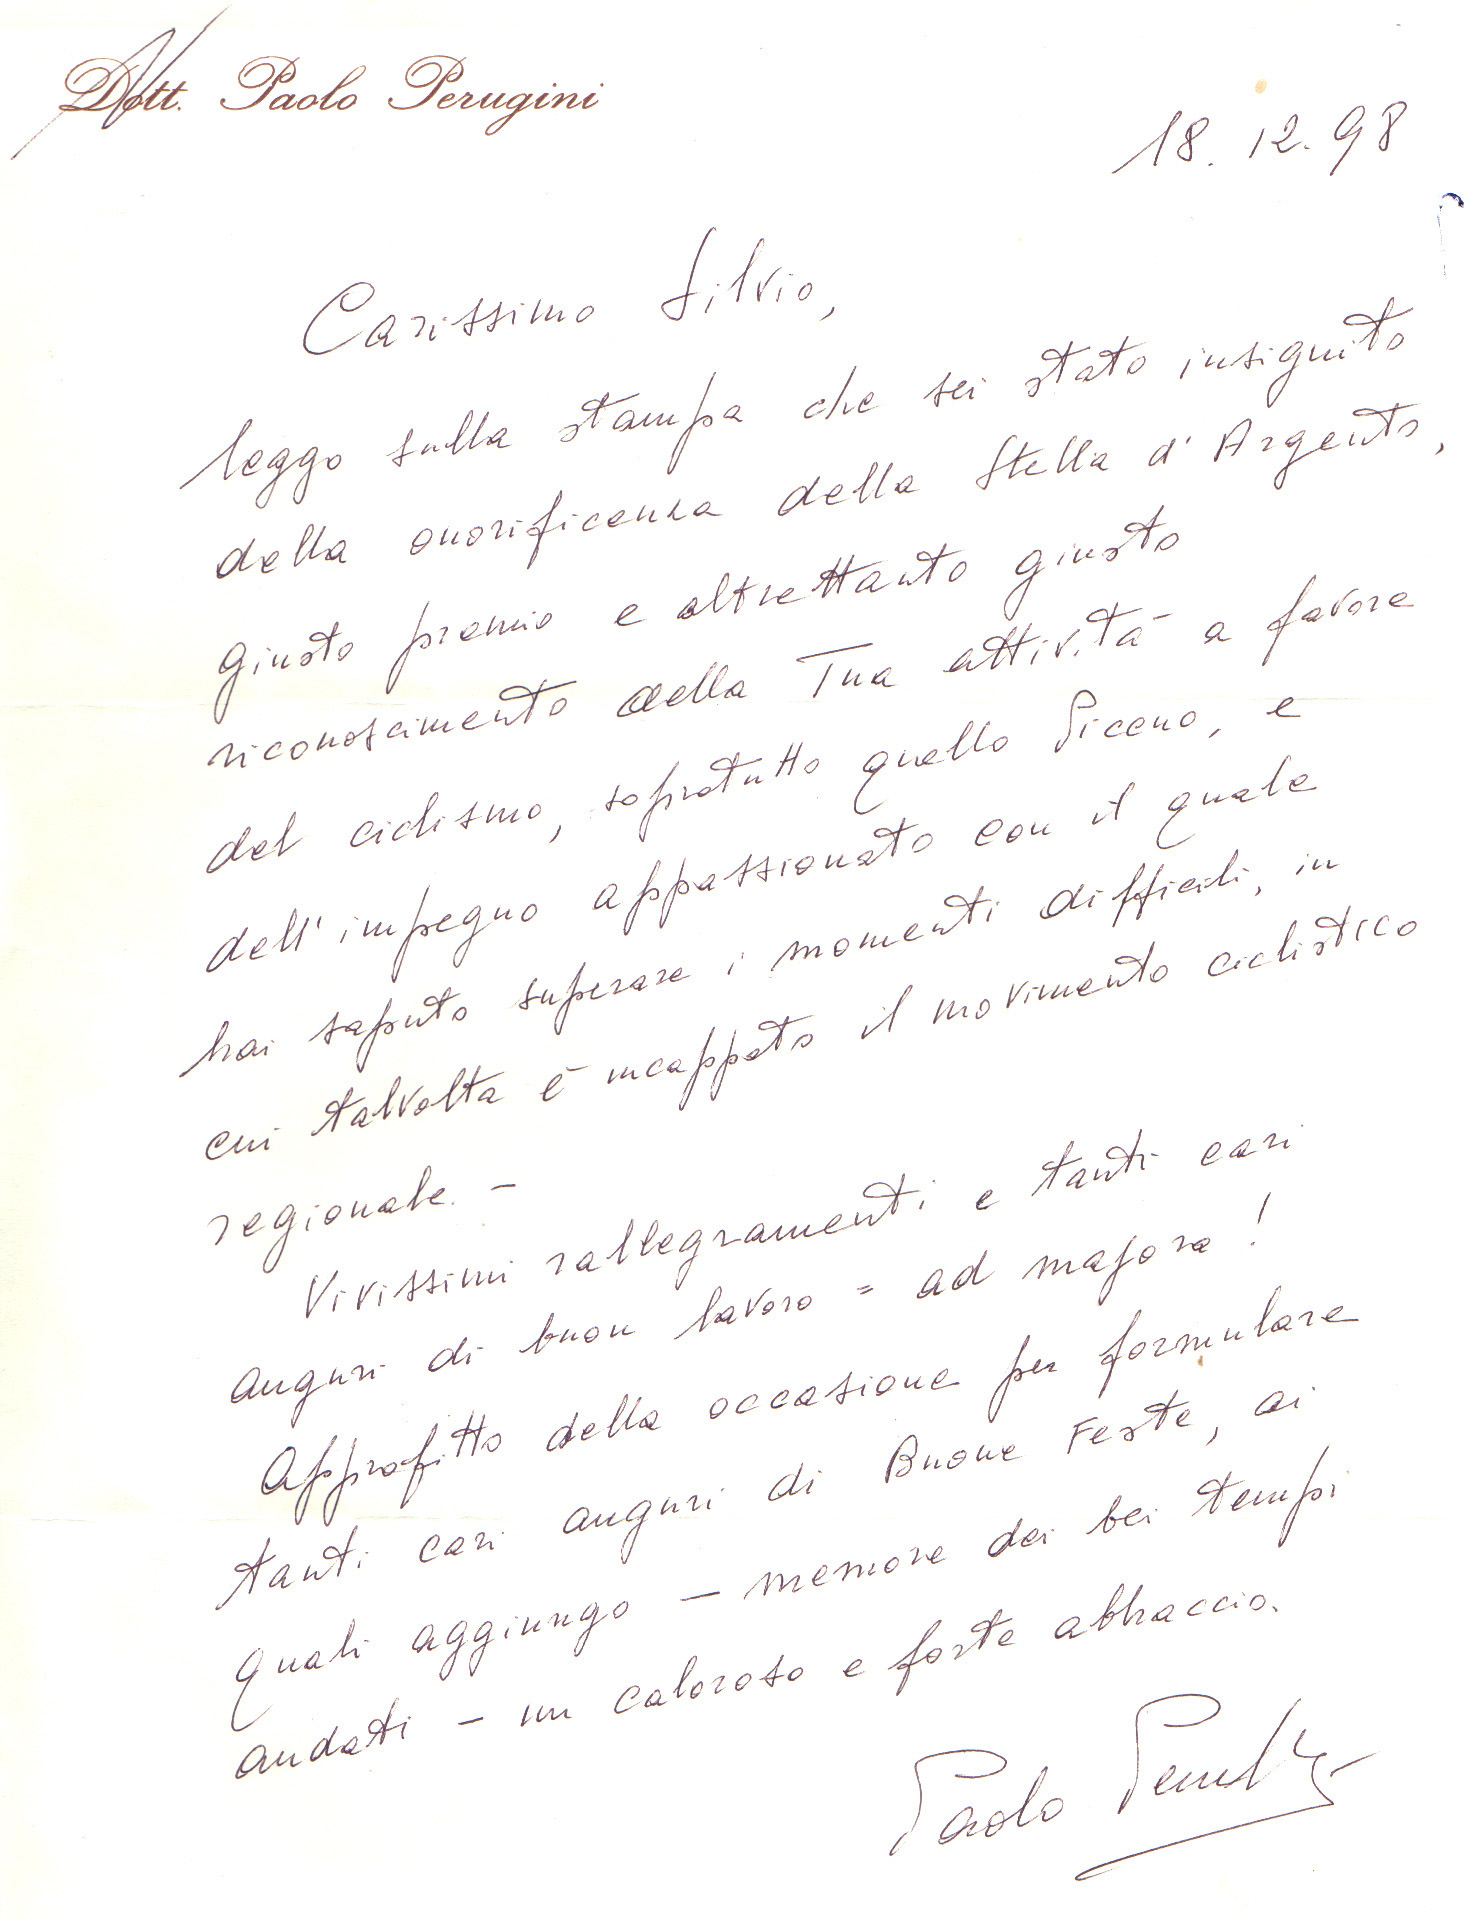 Dott. Paolo Perugini
18.12.98
Carissimo Silvio,
leggo sulla stampa che sei stato insignito
della onorificenza della Stella d'Argento,
giusto premio e altrettanto giusto
riconoscimento della Tua attività a favore
del ciclismo, sopratutto quello Piceno, e
dell'impegno appassionato con il quale
hai saputo superare i momenti difficili, in
cui talvolta è incappato il movimento ciclistico
regionale. -
Vivissimi rallegramenti e tanti cari
auguri di buon lavoro = ad majora!
Approfitto della occasione per formulare
tanti cari auguri di Buone Feste, ai
quali aggiungo - memore dei bei tempi
andati - un caloroso e forte abbraccio.
Paolo Perugini